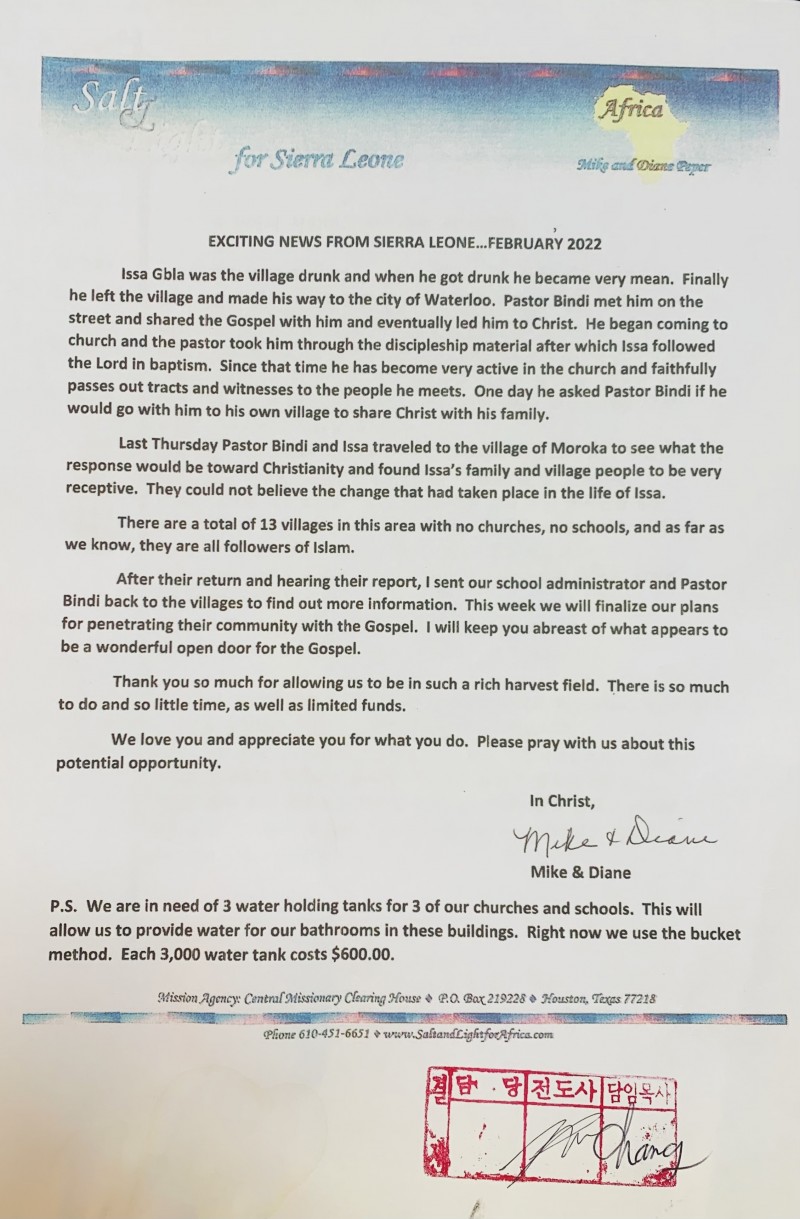 Salt & Light
for Sierra Leone
Africa
Mike and Diane Peper
EXCITING NEWS FROM SIERRA LEONE...FEBRUARY 2022
Issa Gbla was the village drunk and when he got drunk he became very mean. Finally
he left the village and made his way to the city of Waterloo. Pastor Bindi met him on the
street and shared the Gospel with him and eventually led him to Christ. He began coming to
church and the pastor took him through the discipleship material after which Issa followed
the Lord in baptism. Since that time he has become very active in the church and faithfully
passes out tracts and witnesses to the people he meets. One day he asked Pastor Bindi if he
would go with him to his own village to share Christ with his family.
Last Thursday Pastor Bindi and Issa traveled to the village of Moroka to see what the
response would be toward Christianity and found Issa's family and village people to be very
receptive. They could not believe the change that had taken place in the life of Issa.
There are a total of 13 villages in this area with no churches, no schools, and as far as
we know, they are all followers of Islam.
After their return and hearing their report, I sent our school administrator and Pastor
Bindi back to the villages to find out more information. This week we will finalize our plans
for penetrating their community with the Gospel. I will keep you abreast of what appears to
be a wonderful open door for the Gospel.
Thank you so much for allowing us to be in such a rich harvest field. There is so much
to do and so little time, as well as limited funds.
We love you and appreciate you for what you do. Please pray with us about this
potential opportunity.
In Christ,
Mike & Diane
Mike & Diane
P.S. We are in need of 3 water holding tanks for 3 of our churches and schools. This will
allow us to provide water for our bathrooms in these buildings. Right now we use the bucket
method. Each 3,000 water tank costs $600.00.
Mission Agency: Central Missionary Clearing House ◆ P.O. Box 219228 ◆ Houston, Texas 77218
Phone 610-451-6651 ◆ www.SaltandLightforAfrica.com
결재 담 당 전도사 담임목사
Chang